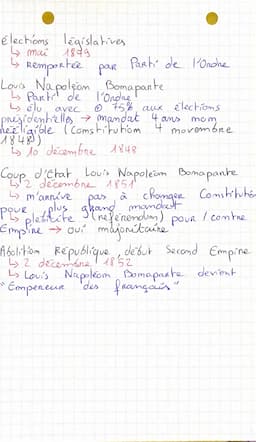 élections législatives
↳ mai 1849
↳ remportée par Parti de l'Ordre
Louis Napoléon Bonaparte
↳ Parti de l'Ordre
↳ élu avec ⊕ 75% aux élections
présidentielles → mandat 4 ans non
rééligible (Constitution 4 novembre
1848)
↳ 10 décembre 1848
Coup d'État Louis Napoléon Bonaparte
↳ 2 décembre 1851
↳ n'arrive pas à changer Constitution
pour plus grand mandat
↳ plébicite (référendum) pour / contre
Empire → oui majoritaire
Abolition République, début Second Empire
↳ 2 décembre 1852
↳ Louis Napoléon Bonaparte devient
"Empereur des français"